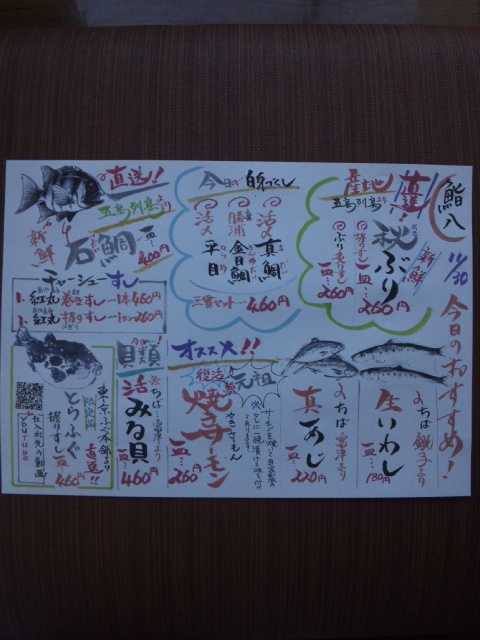 鮨八
11/30
今日のおすすめ!
産地直送!
五島列島より
新鮮
秋ぶり
握りずし
一皿…260円
ぶり炙りずし
一皿…260円
今日の白身づくし
活〆
真鯛
勝浦
金目鯛
活〆
平目
三富セット…460円
直送!
五島列島より
新鮮
石鯛
一皿…400円
チャーシューすし
紅丸巻きすし一本460円
紅丸握りすし一カン260円
のちば銚子より
生いわし
一皿…180円
のちば富津より
真あじ
一皿…220円
オススメ!!
復活
元祖
焼きサーモン
やきさーもん
一皿…260円
今日の!
貝類
※ちば富津より
活みる貝
一皿…460円
東京ふぐ本舗より
直送!!
限定
とらふぐ
握りずし
一皿…460円
仕入れ先の動画
YOUTUBE